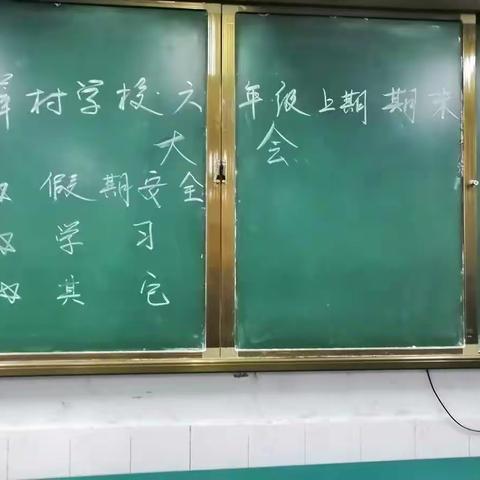 村学校六年级上期期末
大会
☆假期安全
☆学习
☆其它